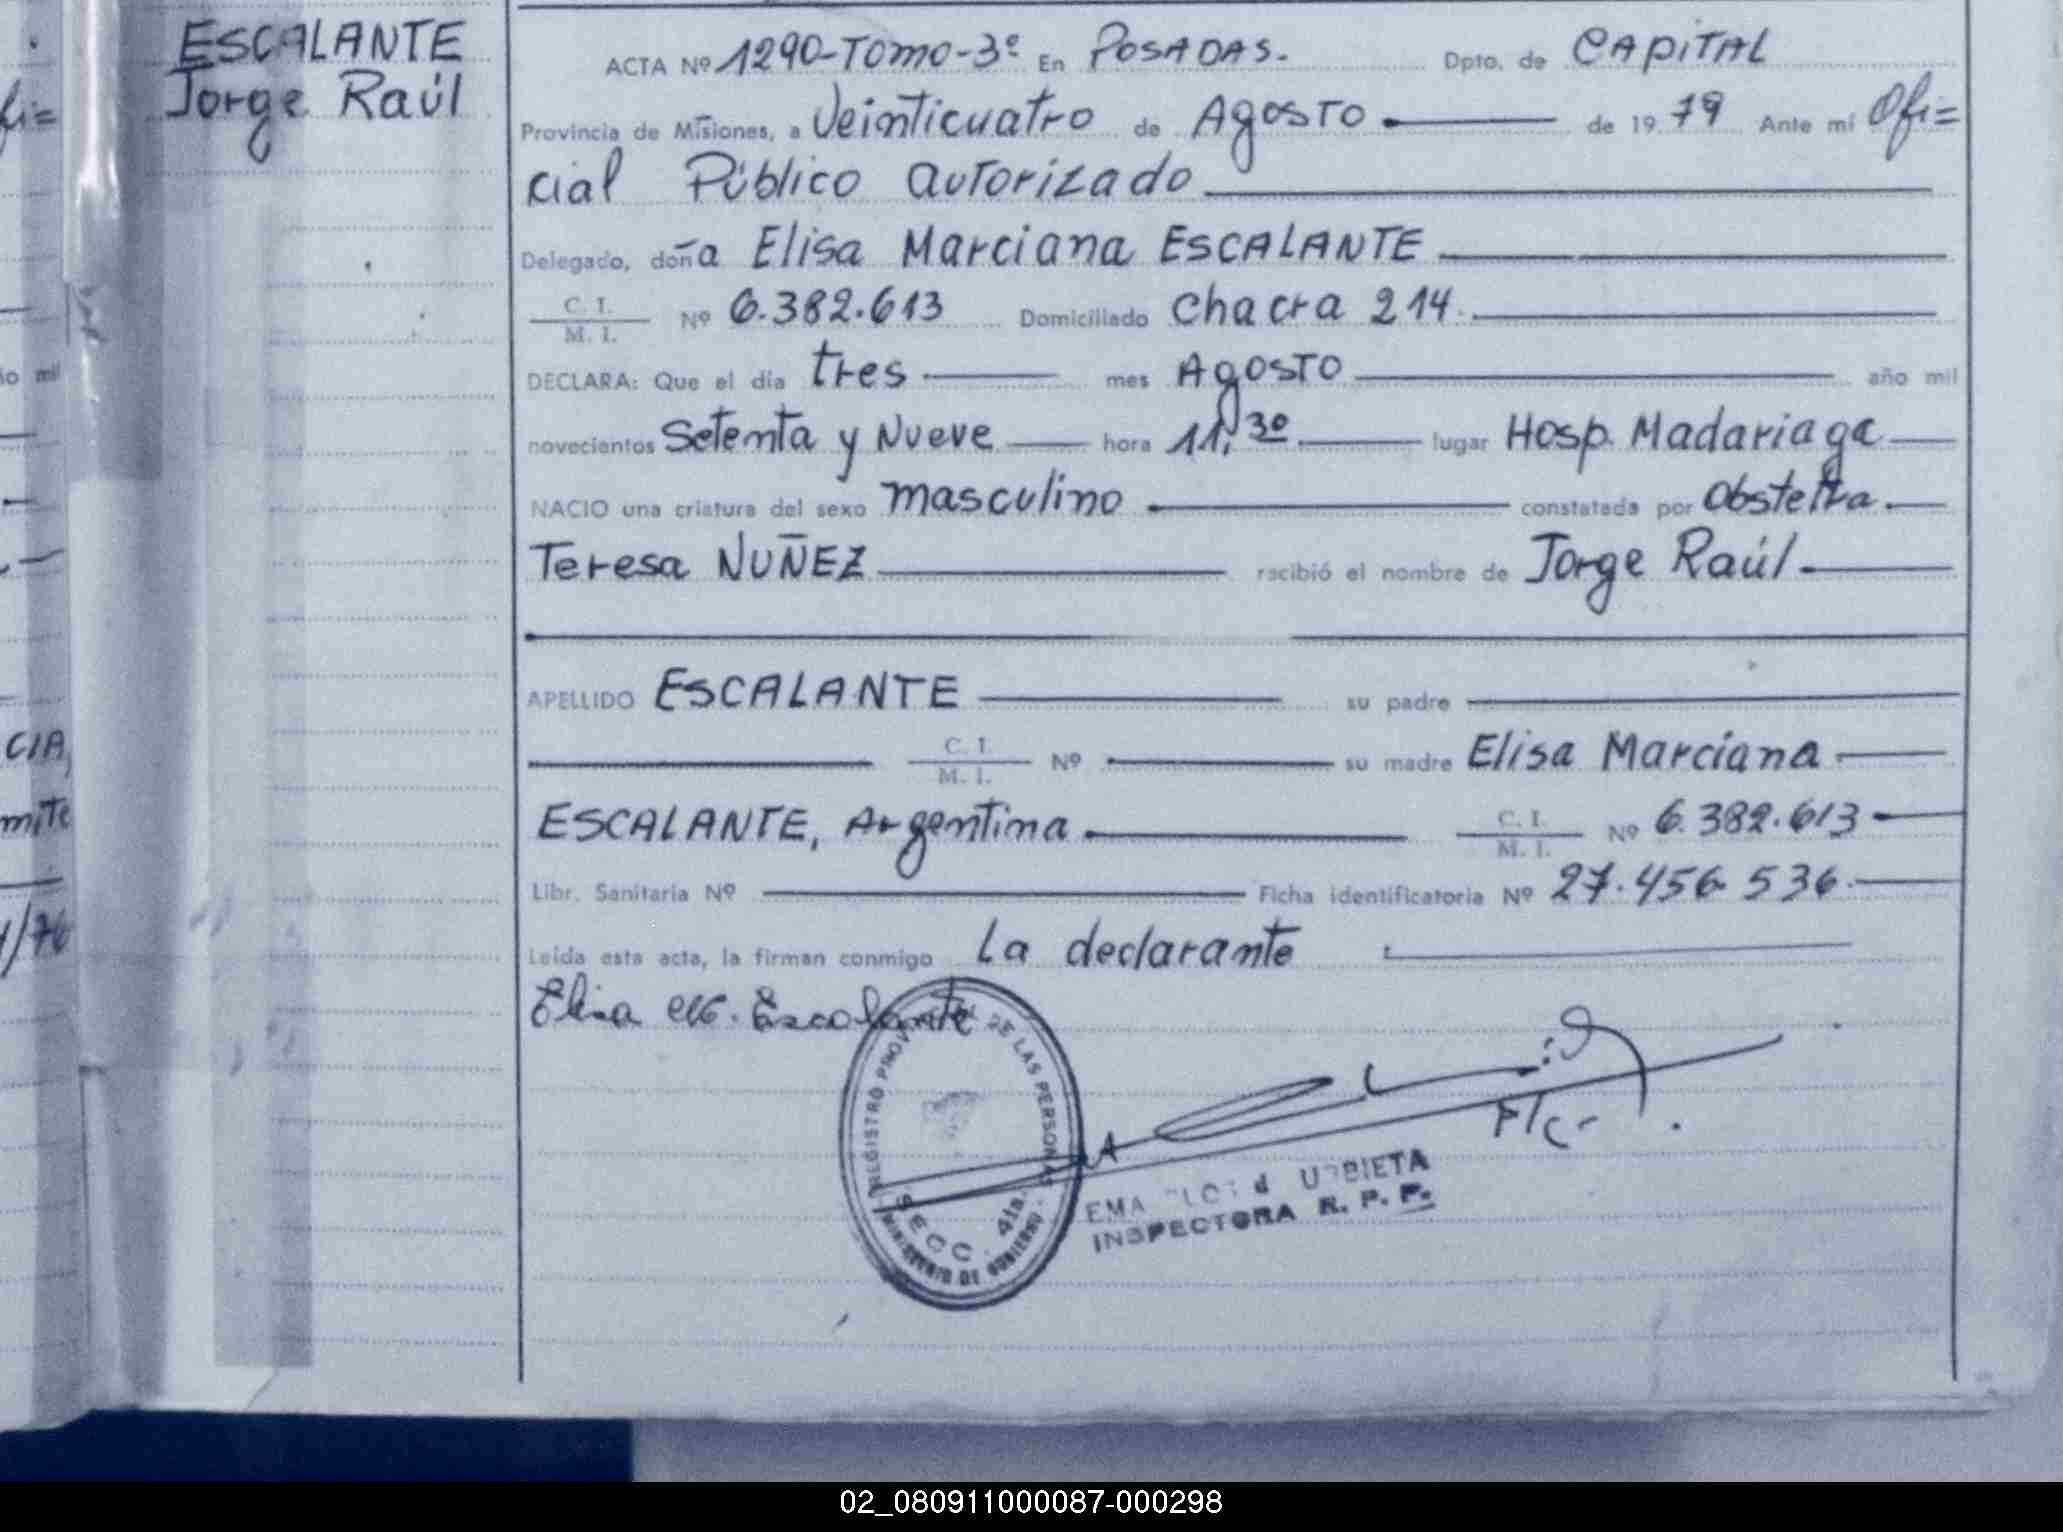 ESCALANTE
Jorge Raúl
ACTA Nº 1290-Tomo-3º En POSADAS. Dpto. de CAPITAL
Provincia de Misiones, a Veinticuatro de Agosto de 1979 Ante mí Ofi=
cial Público autorizado
Delegado, doña Elisa Marciana ESCALANTE
C. I.
M. I. Nº 6.382.613 Domiciliado Chacra 214.
DECLARA: Que el día tres mes Agosto año mil
novecientos Setenta y Nueve hora 11,30 lugar Hosp. Madariaga
NACIO una criatura del sexo masculino constatada por Obstetra
Teresa NUÑEZ recibió el nombre de Jorge Raúl
APELLIDO ESCALANTE su padre
C. I.
M. I. Nº su madre Elisa Marciana
ESCALANTE, Argentina C. I.
M. I. Nº 6.382.613
Libr. Sanitaria Nº Ficha identificatoria Nº 27.456.536.
Leída esta acta, la firman conmigo La declarante
Elisa M. Escalante
REGISTRO PROV DE LAS PERSONAS
SECC. 4ta.
MINISTERIO DE GOBIERNO
P/C-
EMA URBIETA
INSPECTORA R. P. P.
fi=
ño mil
CIA,
mite
/76
02_080911000087-000298